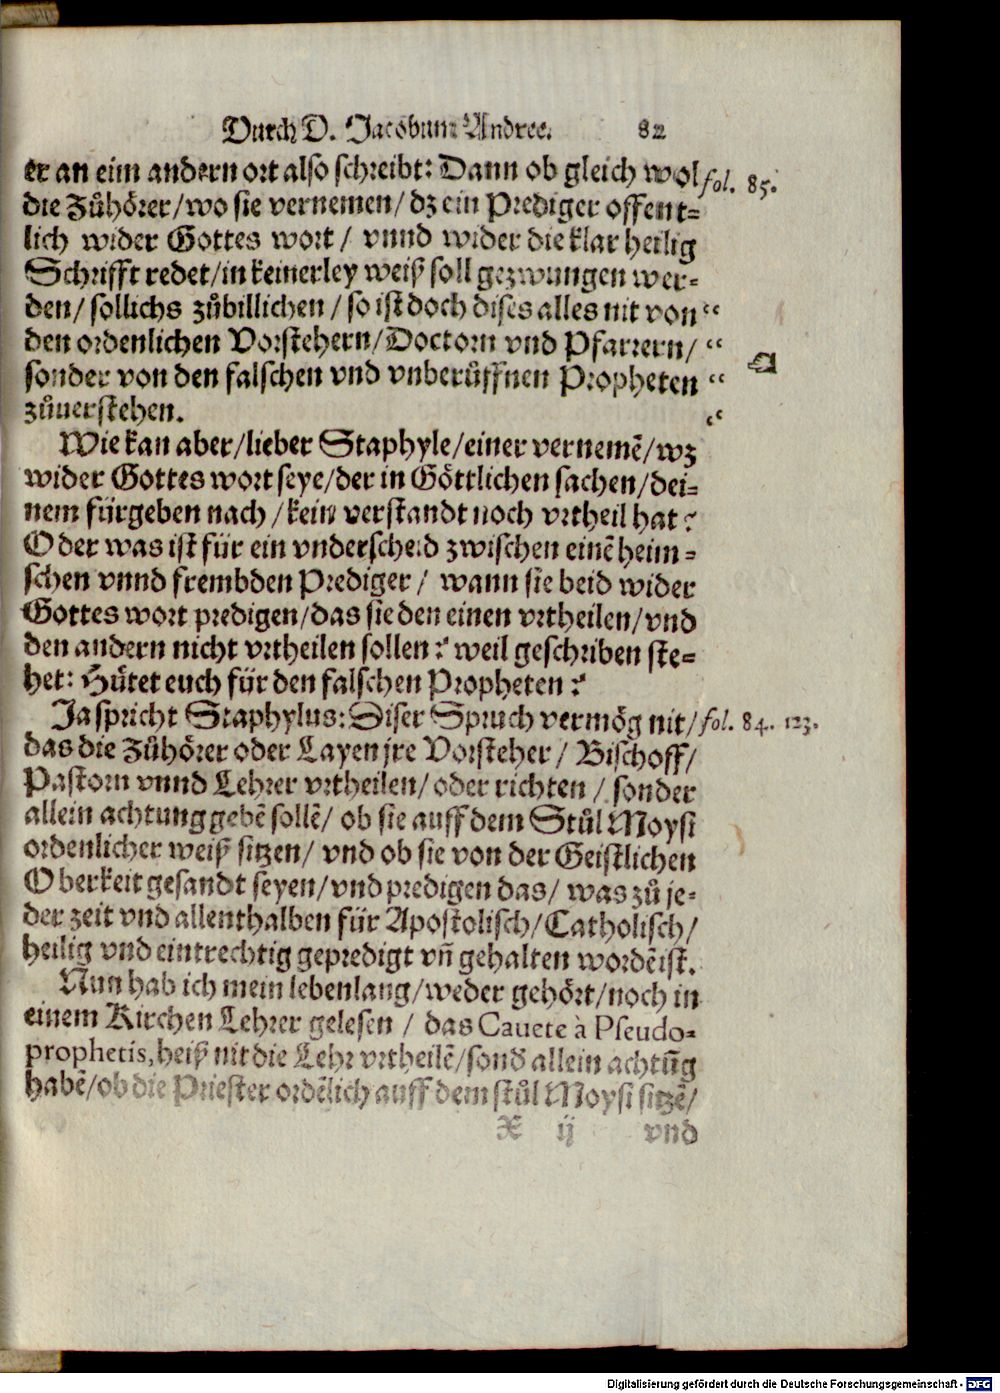 Durch D. Jacobum Andree. 82
er an eim andern ort also schreibt: Dann ob gleich wol fol. 85.
die Zůhörer/ wo sie vernemen/ dz ein Prediger offent-
lich wider Gottes wort/ vnnd wider die klar heilig
Schrifft redet/ in keinerley weiß soll gezwungen wer-
den/ sollichs zůbillichen/ so ist doch dises alles nit von “
den ordenlichen Vorstehern/ Doctorn vnd Pfarrern/ “
sonder von den falschen vnd vnberůffnen Propheten “
zůuerstehen. “
Wie kan aber/ lieber Staphyle/ einer vernemẽ/ wz
wider Gottes wort seye/ der in Göttlichen sachen/ dei-
nem fürgeben nach/ kein verstandt noch vrtheil hat?
Oder was ist für ein vnderscheid zwischen einẽ heim-
schen vnnd frembden Prediger/ wann sie beid wider
Gottes wort predigen/ das sie den einen vrtheilen/ vnd
den andern nicht vrtheilen sollen? weil geschriben ste-
het: Hütet euch für den falschen Propheten?
Ja spricht Staphylus: Diser Spruch vermög nit/ fol. 84. 123.
das die Zůhörer oder Layen jre Vorsteher/ Bischoff/
Pastorn vnnd Lehrer vrtheilen/ oder richten/ sonder
allein achtung gebẽ sollẽ/ ob sie auff dem Stůl Moysi
ordenlicher weiß sitzen/ vnd ob sie von der Geistlichen
Oberkeit gesandt seyen/ vnd predigen das/ was zů je-
der zeit vnd allenthalben für Apostolisch/ Catholisch/
heilig vnd eintrechtig gepredigt vñ gehalten wordẽ ist.
Nun hab ich mein lebenlang/ weder gehört/ noch in
einem Kirchen Lehrer gelesen/ das Cauete à Pseudo-
prophetis, heiß nit die Lehr vrtheilẽ/ sond̃ allein achtũg
habẽ/ ob die Priester ordẽlich auff dem stůl Moysi sitzẽ/
X ij vnd
Digitalisierung gefördert durch die Deutsche Forschungsgemeinschaft - DFG